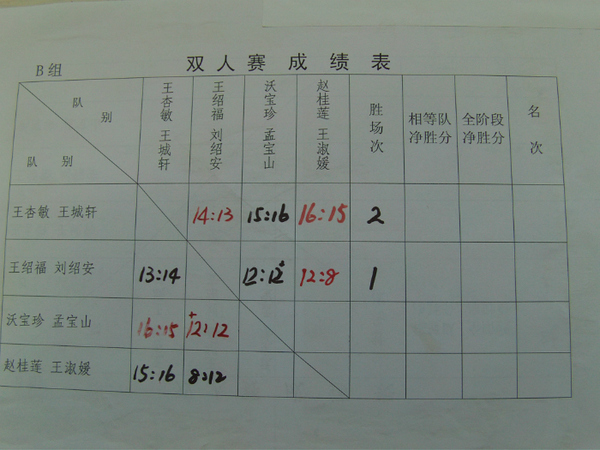 双人赛成绩表
B组
队别
队别
王杏敏 王城轩
王绍福 刘绍安
沃宝珍 孟宝山
赵桂莲 王淑媛
胜场次
相等队净胜分
全阶段净胜分
名次
王杏敏 王城轩 14:13 15:16 16:15 2
王绍福 刘绍安 13:14 12:12+ 12:8 1
沃宝珍 孟宝山 16:15 +12:12
赵桂莲 王淑媛 15:16 8:12